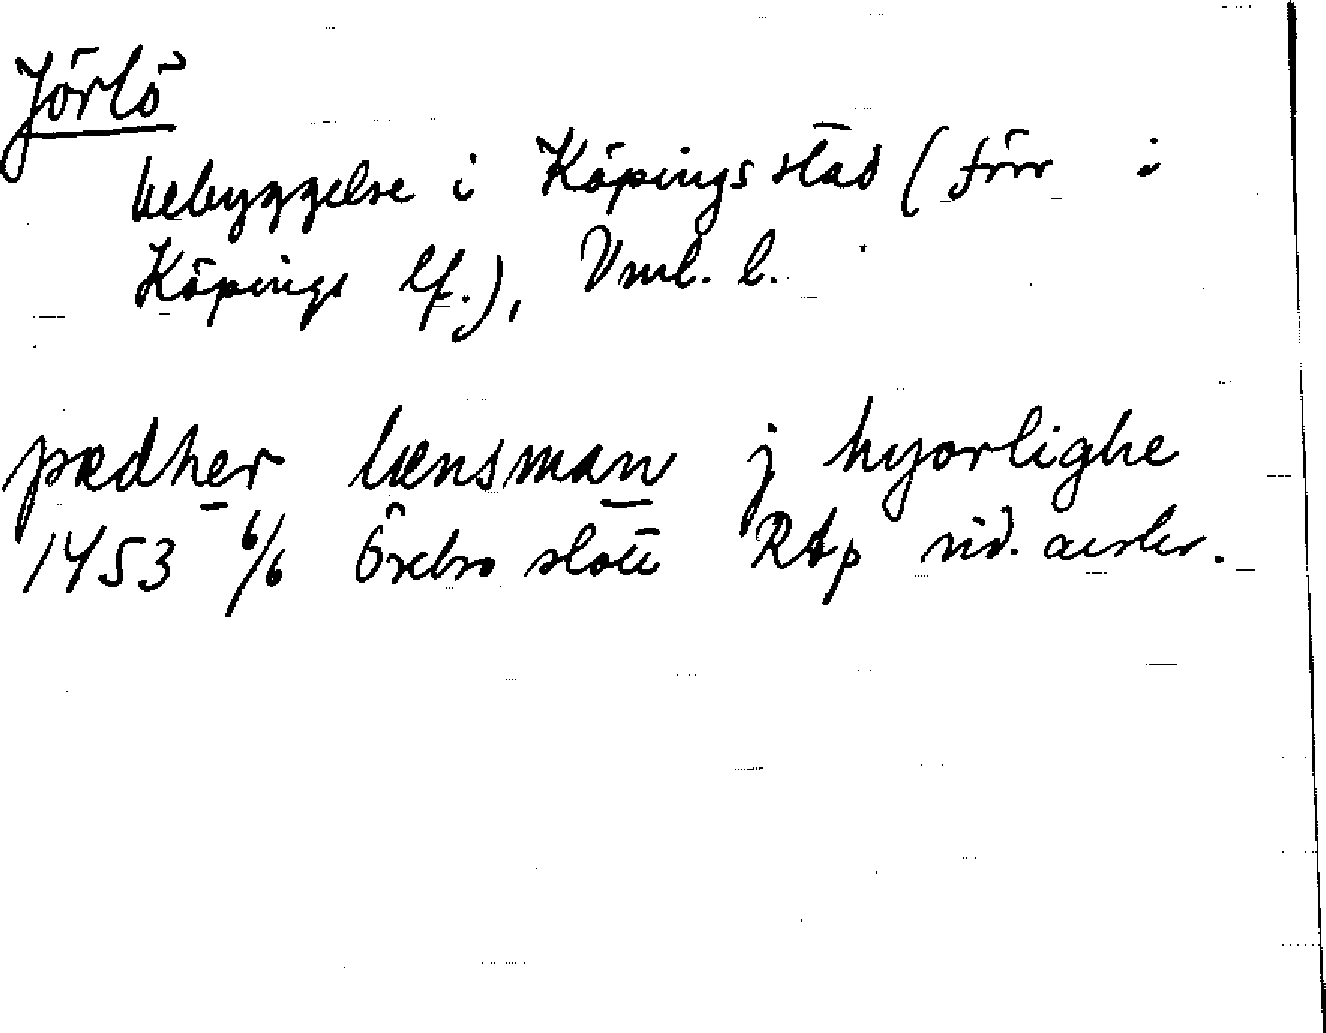 Jörlö
bebyggelse i Köpings stad (förr i
Köpings lf.), Vml. l.
pædher lænsman j hyorlighe
1453 6/6 Örebro slott RAp vid. avskr.